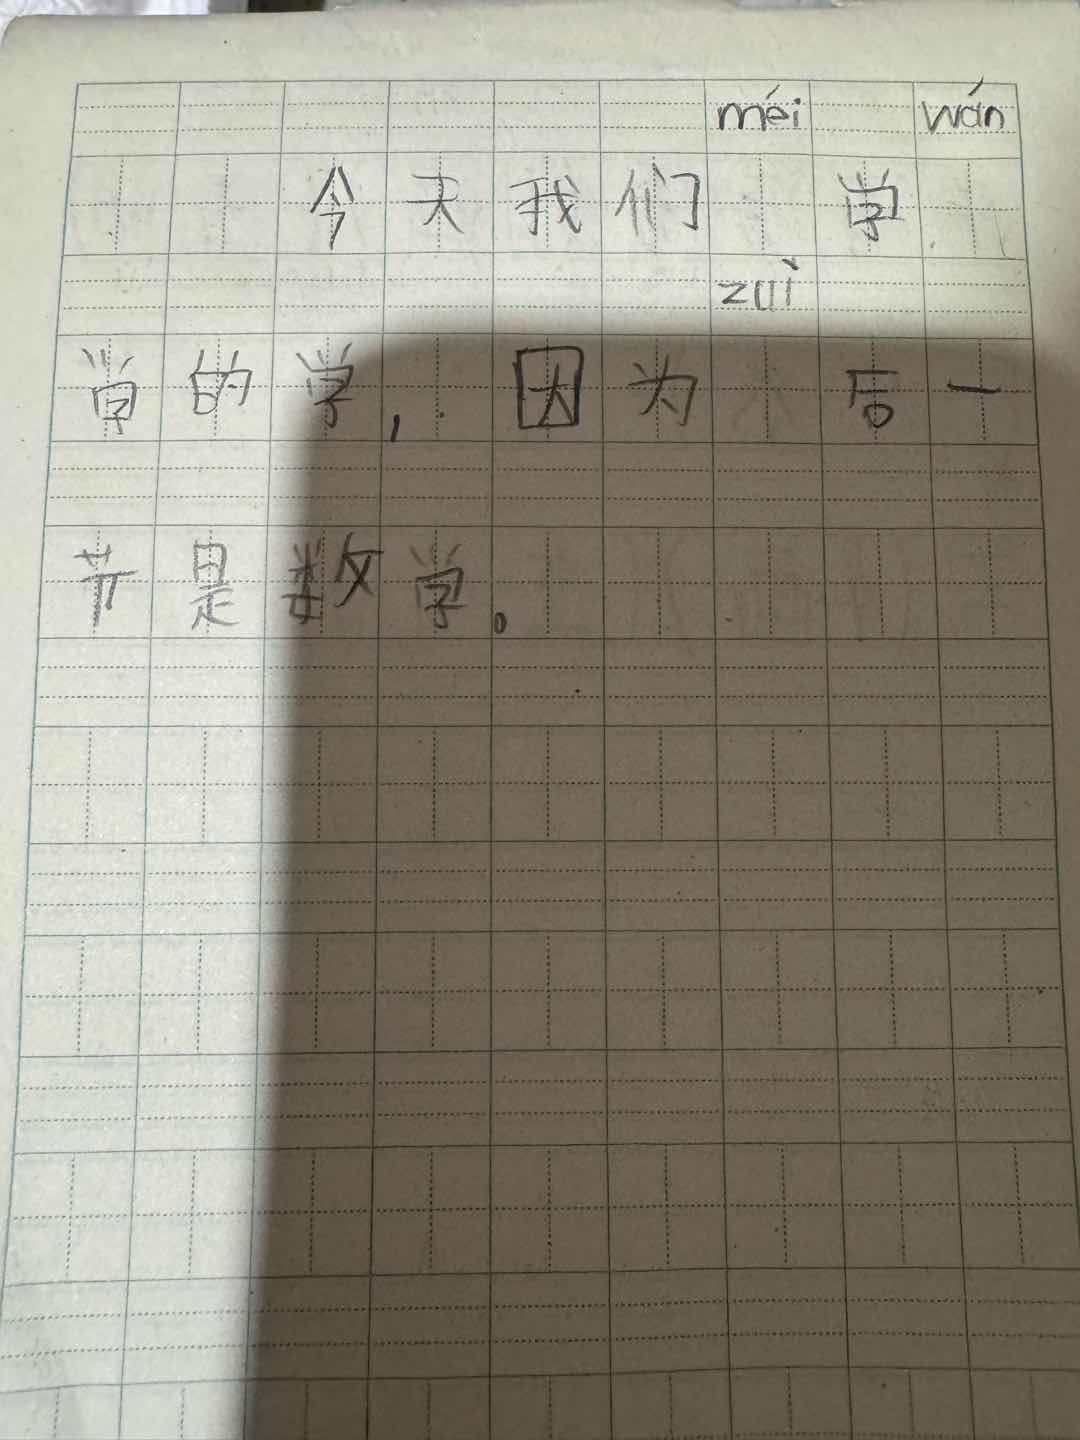 méi wán
今天我们 学
zuì
学的学，因为 后一
节是数学。